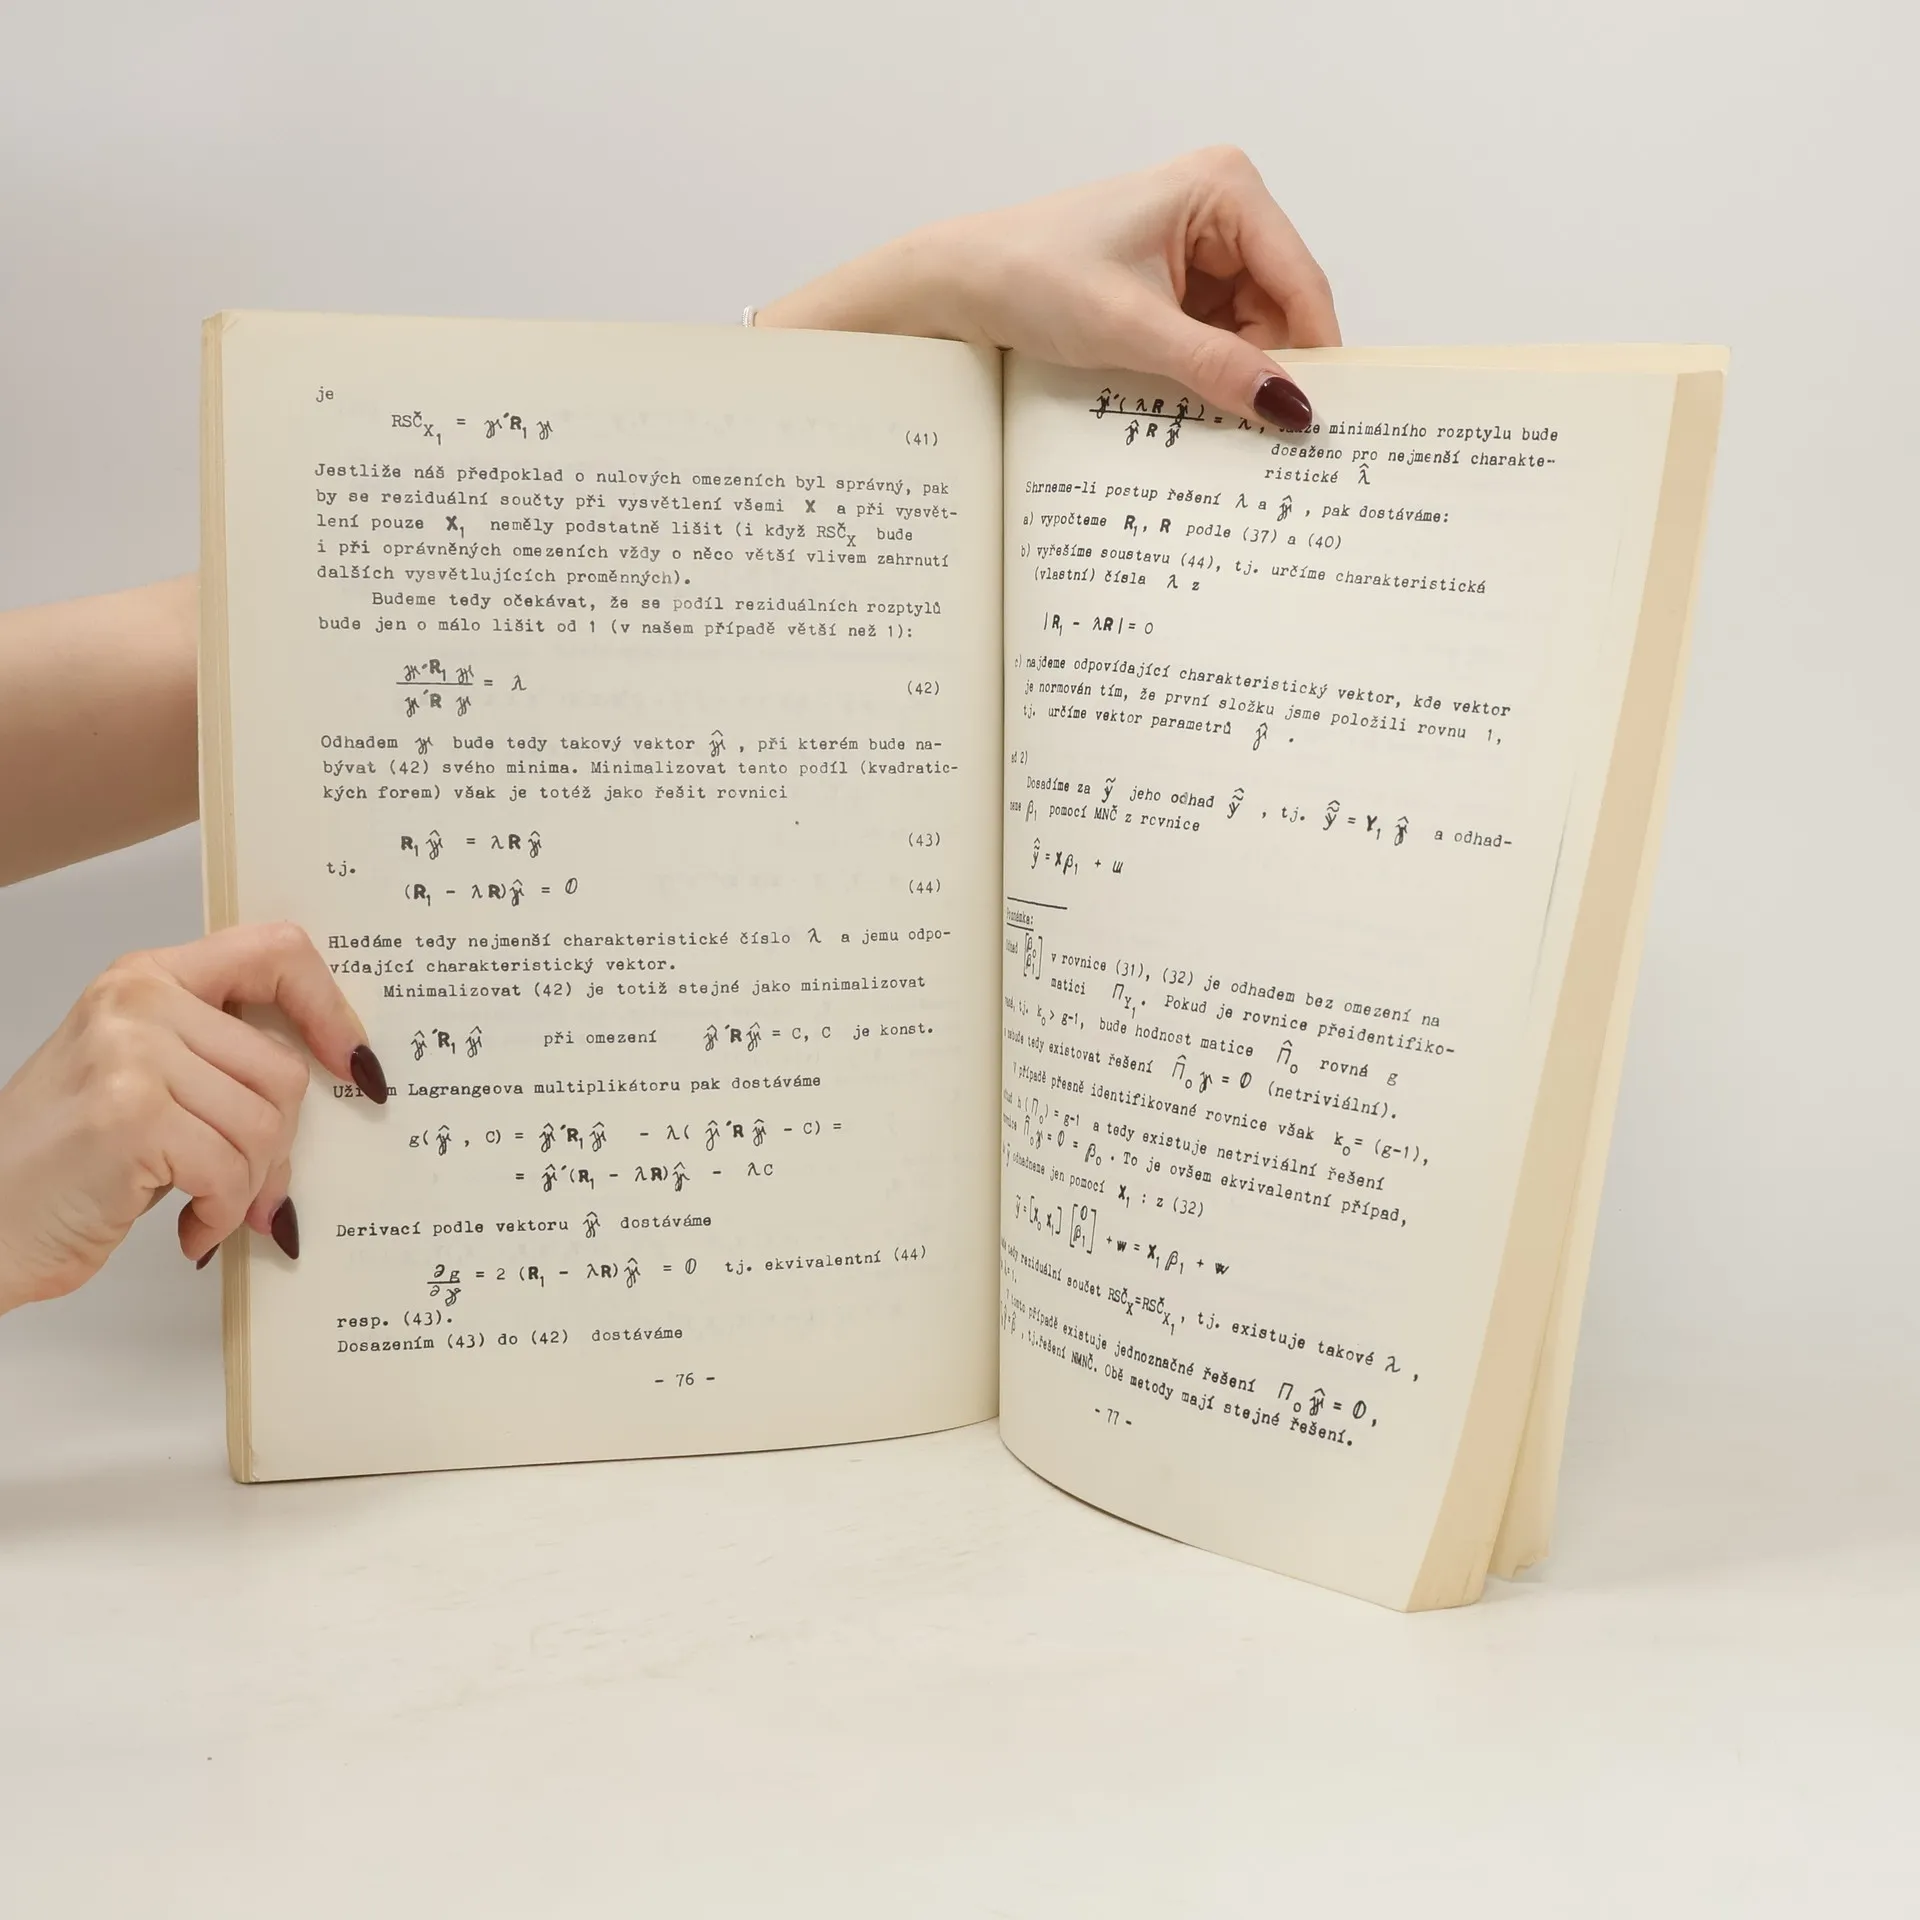 je
RSČ_X₁ = γ´R₁ γ (41)
Jestliže náš předpoklad o nulových omezeních byl správný, pak
by se reziduální součty při vysvětlení všemi X a při vysvět-
lení pouze X₁ neměly podstatně lišit (i když RSČ_X bude
i při oprávněných omezeních vždy o něco větší vlivem zahrnutí
dalších vysvětlujících proměnných).
Budeme tedy očekávat, že se podíl reziduálních rozptylů
bude jen o málo lišit od 1 (v našem případě větší než 1):
γ´R₁ γ / γ´R γ = λ (42)
Odhadem γ bude tedy takový vektor γ̂ , při kterém bude na-
bývat (42) svého minima. Minimalizovat tento podíl (kvadratic-
kých forem) však je totéž jako řešit rovnici
R₁ γ̂ = λ R γ̂ (43)
tj.
(R₁ - λ R)γ̂ = 0 (44)
Hledáme tedy nejmenší charakteristické číslo λ a jemu odpo-
vídající charakteristický vektor.
Minimalizovat (42) je totiž stejné jako minimalizovat
γ̂´R₁ γ̂ při omezení γ̂´R γ̂ = C, C je konst.
Lagrangeova multiplikátoru pak dostáváme
g(γ̂ , C) = γ̂´R₁ γ̂ - λ( γ̂´R γ̂ - C) =
= γ̂´(R₁ - λR)γ̂ - λC
Derivací podle vektoru γ̂ dostáváme
∂g / ∂γ̂ = 2 (R₁ - λR)γ̂ = 0 tj. ekvivalentní (44)
resp. (43).
Dosazením (43) do (42) dostáváme
- 76 -
γ̂´( λ R γ̂ ) / γ̂ R γ̂ = λ , minimálního rozptylu bude
dosaženo pro nejmenší charakte-
ristické λ̂
Shrneme-li postup řešení λ a γ̂ , pak dostáváme:
a) vypočteme R₁, R podle (37) a (40)
b) vyřešíme soustavu (44), tj. určíme charakteristická
(vlastní) čísla λ z
|R₁ - λR| = 0
c) najdeme odpovídající charakteristický vektor, kde vektor
je normován tím, že první složku jsme položili rovnu 1,
tj. určíme vektor parametrů γ̂ .
ad 2)
Dosadíme za ỹ jeho odhad ỹ̂ , tj. ỹ̂ = Y₁ γ̂ a odhad-
neme β₁ pomocí MNČ z rovnice
ỹ̂ = Xβ₁ + u
Poznámka:
Odhad [β₀ β₁] v rovnice (31), (32) je odhadem bez omezení na
matici Π_Y₁. Pokud je rovnice přeidentifiko-
tj. k₀ > g-1, bude hodnost matice Π̂₀ rovná g
a nebude tedy existovat řešení Π̂₀ γ = 0 (netriviální).
V případě přesně identifikované rovnice však k₀ = (g-1),
h(Π₀) = g-1 a tedy existuje netriviální řešení
Π̂₀ γ = 0 = β₀ . To je ovšem ekvivalentní případ,
odhadneme jen pomocí X₁ : z (32)
ỹ = [X₀ X₁] [0 β₁] + w = X₁ β₁ + w
tedy reziduální součet RSČ_X=RSČ_X₁, tj. existuje takové λ ,
V tomto případě existuje jednoznačné řešení Π₀ γ̂ = 0,
tj.řešení NMNČ. Obě metody mají stejné řešení.
- 77 -